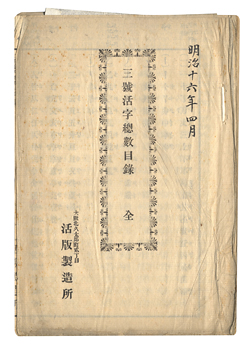 明治十六年四月
三號活字總數目錄 全
活版製造所